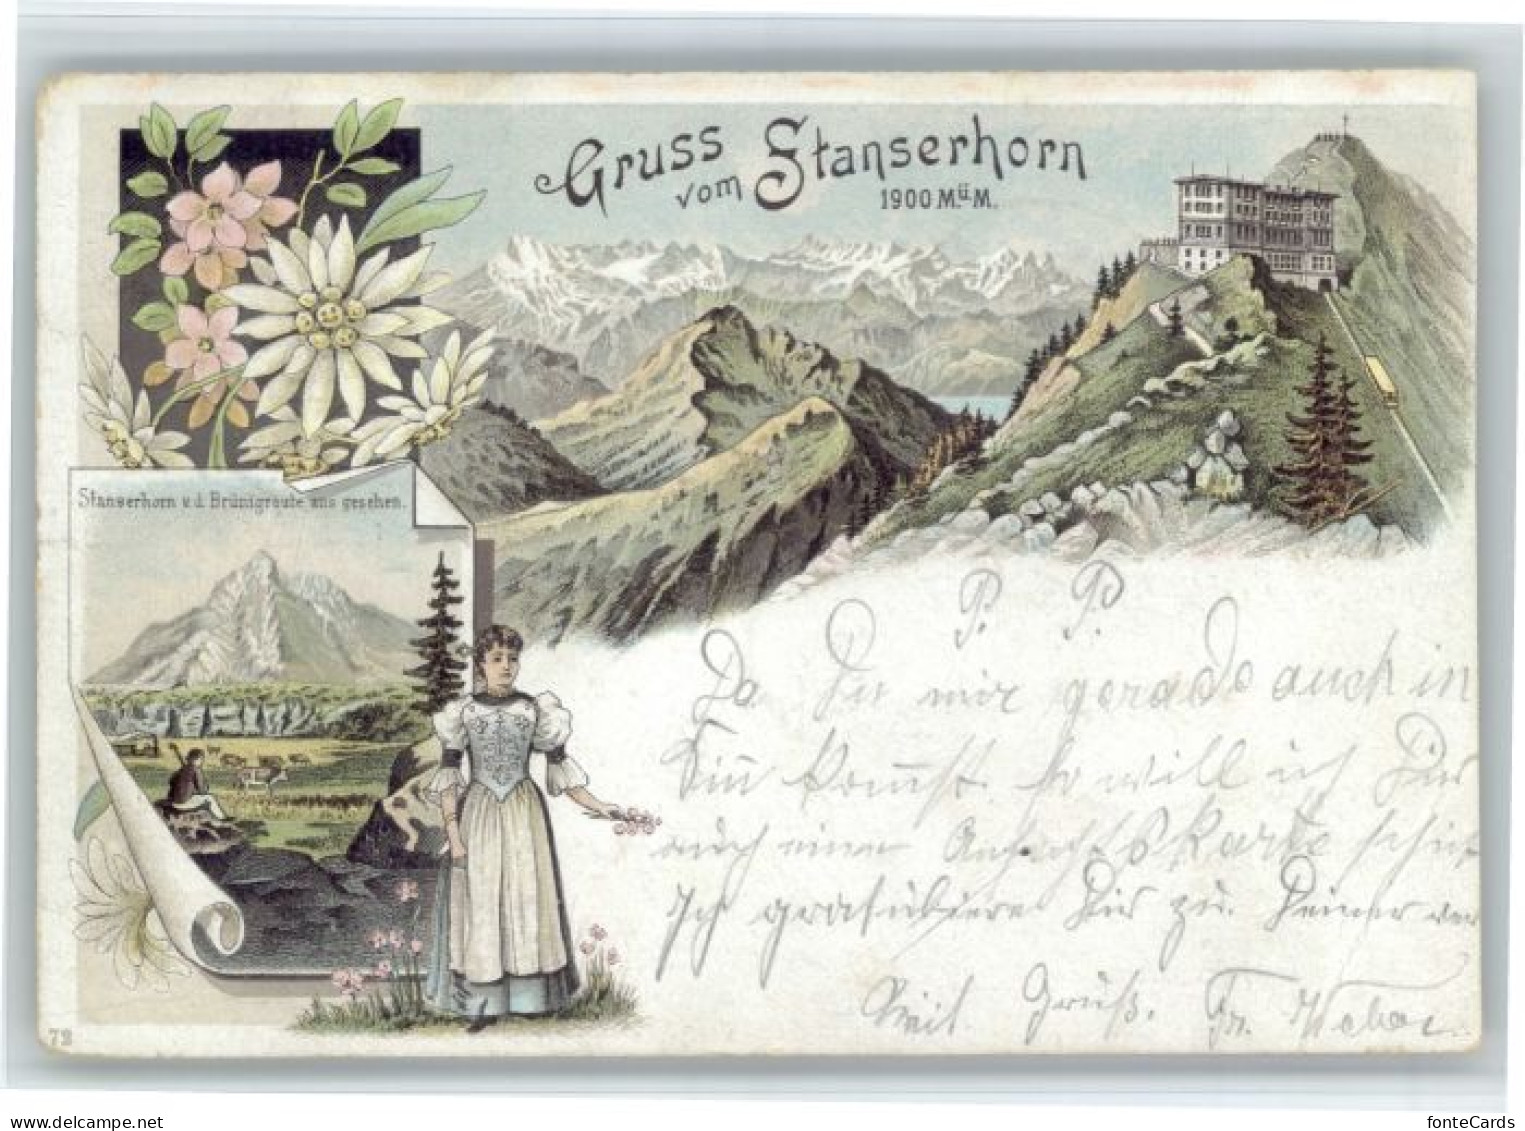 Gruss
vom Stanserhorn
1900 M.ü.M.
Stanserhorn v.d. Brünigroute aus gesehen.
P. P.
Da Du mir gerade auch in
Sinn kommst so will ich Dir
auch eine Ansichtskarte schik
Ich gratuliere Dir zu Deiner
Mit Gruß. Fr. Weber
73
delcampe.net
fonteCards